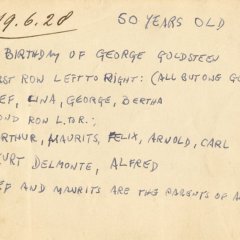 19.6.28 50 YEARS OLD
BIRTHDAY OF GEORGE GOLDSTEEN
ROW LEFT TO RIGHT: (ALL BUT ONE
EF, LINA, GEORGE, BERTHA
OND ROW L.T.R.:
ARTHUR, MAURITS, FELIX, ARNOLD, CARL
DELMONTE, ALFRED
AND MAURITS ARE THE PARENTS OF